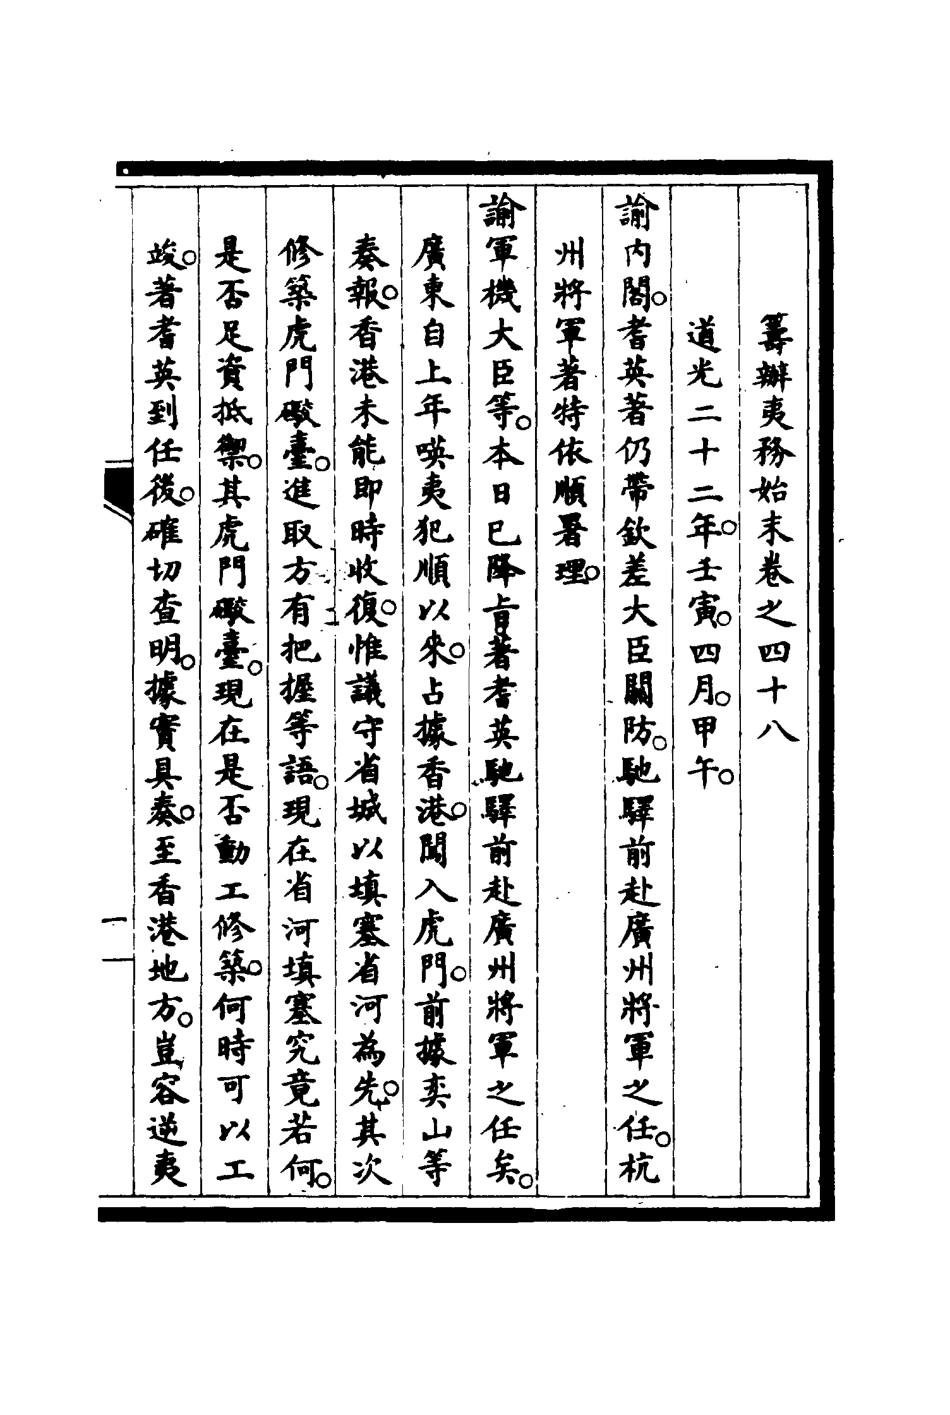 籌辦夷務始末卷之四十八
道光二十二年。壬寅。四月。甲午。
諭內閣。耆英著仍帶欽差大臣關防。馳驛前赴廣州將軍之任。杭
州將軍著特依順署理。
諭軍機大臣等。本日已降旨著耆英馳驛前赴廣州將軍之任矣。
廣東自上年㗸夷犯順以來。占據香港。闖入虎門。前據奕山等
奏報。香港未能即時收復。惟議守省城以填塞省河為先。其次
修築虎門礮臺。進取方有把握等語。現在省河填塞究竟若何。
是否足資抵禦。其虎門礮臺。現在是否動工修築。何時可以工
竣。著耆英到任後。確切查明。據實具奏。至香港地方。豈容逆夷
一